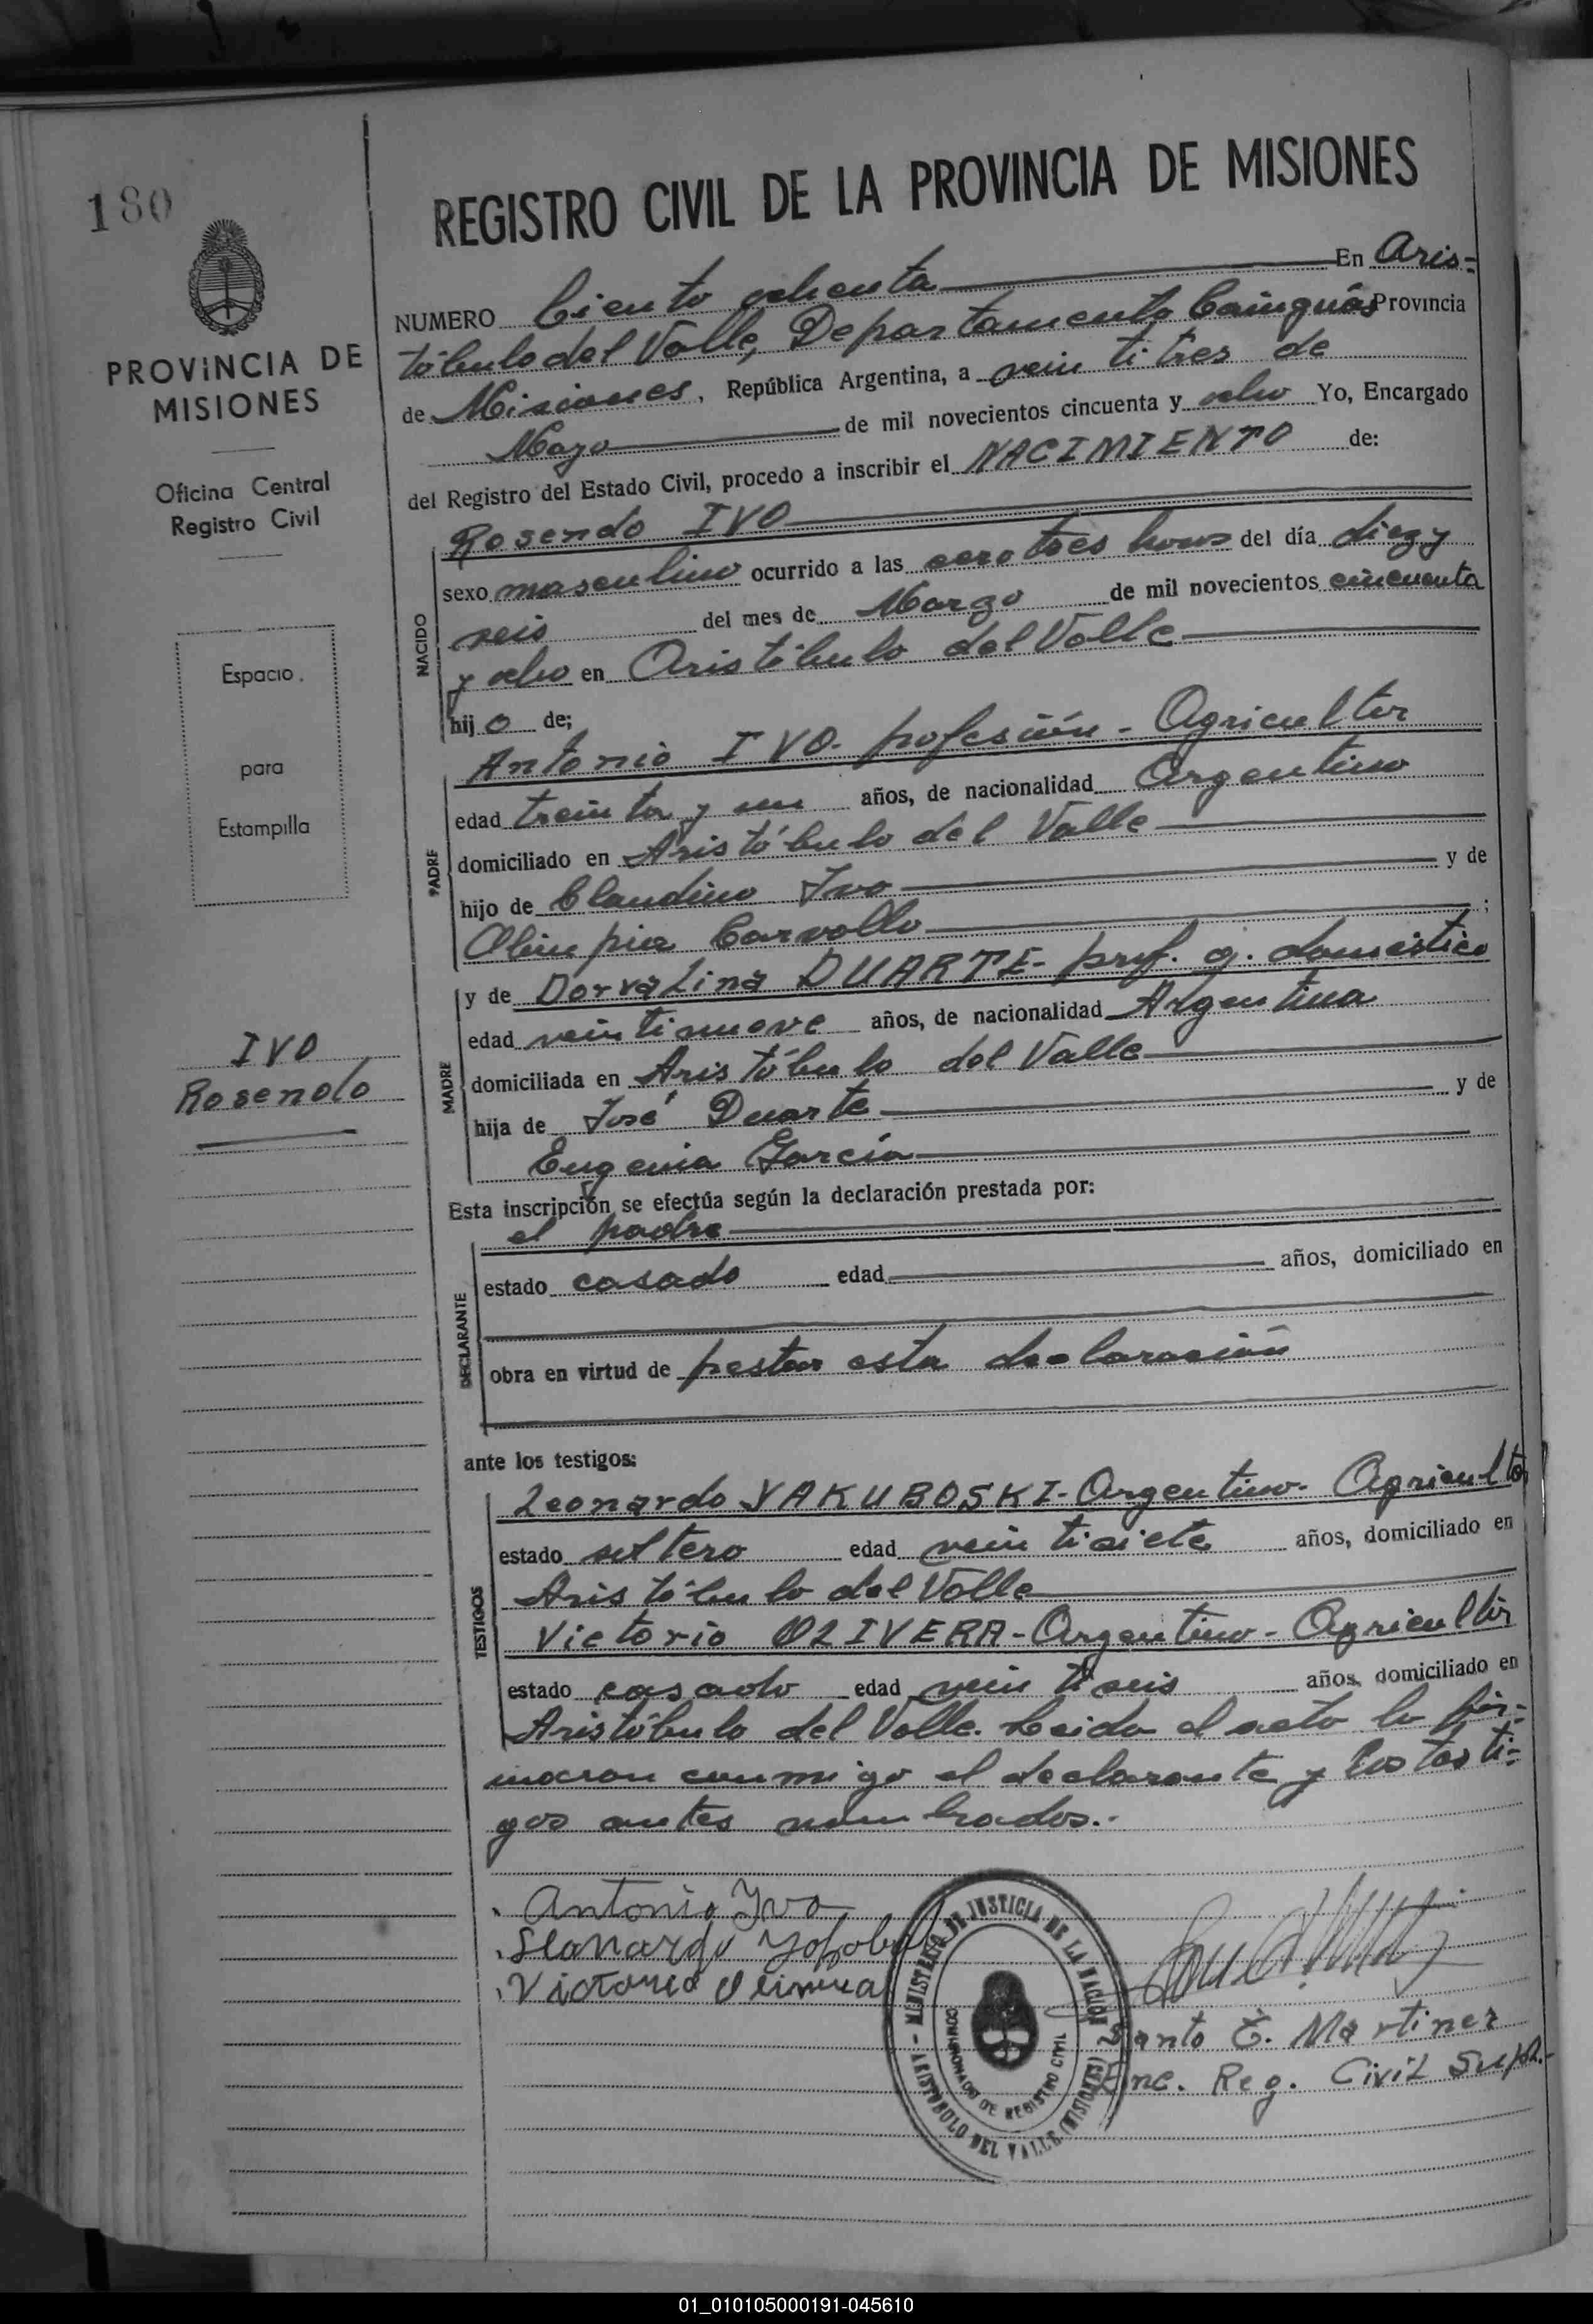 180
PROVINCIA DE
MISIONES
Oficina Central
Registro Civil
Espacio
para
Estampilla
IVO
Rosendo
REGISTRO CIVIL DE LA PROVINCIA DE MISIONES
NUMERO Ciento ochenta En Aris=
tóbulo del Valle, Departamento Cainguás Provincia
de Misiones, República Argentina, a vein ti tres de
Mayo de mil novecientos cincuenta y ocho Yo, Encargado
del Registro del Estado Civil, procedo a inscribir el NACIMIENTO de:
NACIDO
Rosendo IVO
sexo masculino ocurrido a las cero tres horas del día diez y
seis del mes de Marzo de mil novecientos cincuenta
y ocho en Aristóbulo del Valle
hijo de;
PADRE
Antonio IVO. profesión - Agricultor
edad treinta y un años, de nacionalidad Argentino
domiciliado en Aristóbulo del Valle
hijo de Claudino Ivo y de
Olimpia Carvallo ;
MADRE
y de Dorvalina DUARTE - prof. q. doméstico
edad veintinueve años, de nacionalidad Argentina
domiciliada en Aristóbulo del Valle
hija de José Duarte y de
Eugenia García
Esta inscripción se efectúa según la declaración prestada por:
DECLARANTE
el padre
estado casado edad años, domiciliado en
obra en virtud de prestar esta declaración
ante los testigos:
TESTIGOS
Leonardo YAKUBOSKI - Argentino - Agricultor
estado soltero edad vein tisiete años, domiciliado en
Aristóbulo del Valle
Victorio OLIVERA - Argentino - Agricultor
estado casado edad vein tiseis años, domiciliado en
Aristóbulo del Valle. Leida el acta la fir=
maron conmigo el declarante y los testi=
gos antes nombrados.-
Antonio Ivo
Victorio Olivera
MINISTERIO DE JUSTICIA DE LA NACION
COMISIONADO DE REGISTRO CIVIL
ARISTOBULO DEL VALLE (MISIONES)
Santo E. Martinez
Enc. Reg. Civil Supl.
01_010105000191-045610